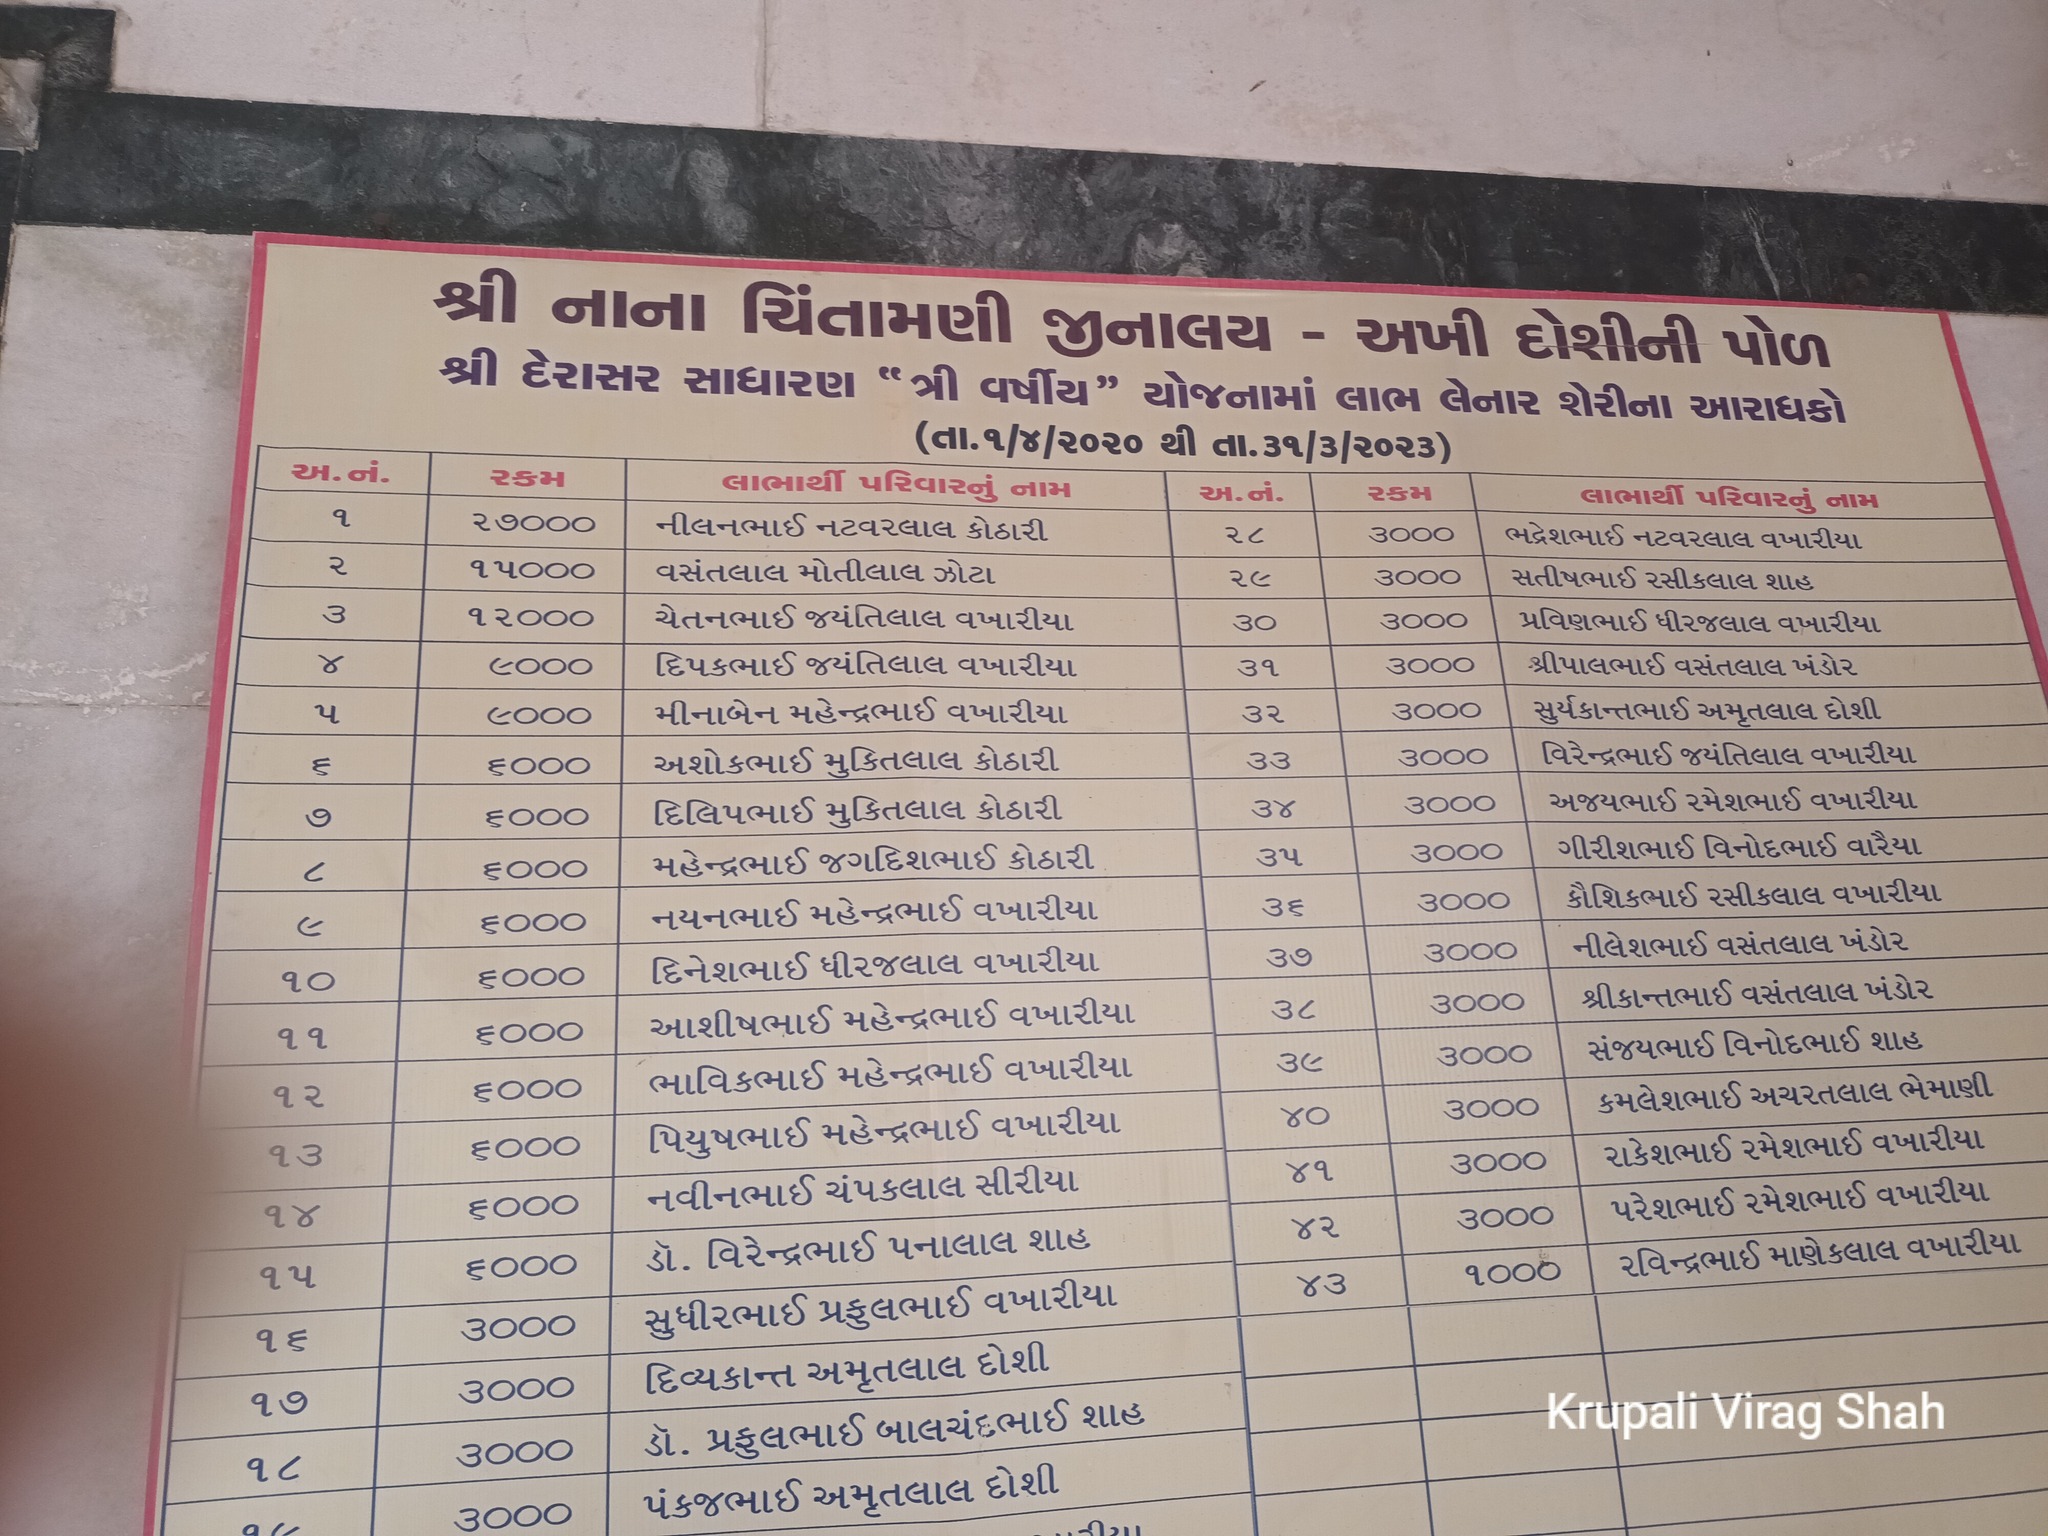 શ્રી નાના ચિંતામણી જીનાલય - અખી દોશીની પોળ
શ્રી દેરાસર સાધારણ “ત્રી વર્ષીય” યોજનામાં લાભ લેનાર શેરીના આરાધકો
(તા.૧/૪/૨૦૨૦ થી તા.૩૧/૩/૨૦૨૩)
અ.નં. ૨કમ લાભાર્થી પરિવારનું નામ અ.નં. ૨કમ લાભાર્થી પરિવારનું નામ
૧ ૨૭૦૦૦ નીલનભાઈ નટવરલાલ કોઠારી ૨૮ ૩૦૦૦ ભદ્રેશભાઈ નટવરલાલ વખારીયા
૨ ૧૫૦૦૦ વસંતલાલ મોતીલાલ ઝોટા ૨૯ ૩૦૦૦ સતીષભાઈ રસીકલાલ શાહ
૩ ૧૨૦૦૦ ચેતનભાઈ જયંતિલાલ વખારીયા ૩૦ ૩૦૦૦ પ્રવિણભાઈ ધીરજલાલ વખારીયા
૪ ૯૦૦૦ દિપકભાઈ જયંતિલાલ વખારીયા ૩૧ ૩૦૦૦ શ્રીપાલભાઈ વસંતલાલ ખંડોર
૫ ૯૦૦૦ મીનાબેન મહેન્દ્રભાઈ વખારીયા ૩૨ ૩૦૦૦ સુર્યકાન્તભાઈ અમૃતલાલ દોશી
૬ ૬૦૦૦ અશોકભાઈ મુકિતલાલ કોઠારી ૩૩ ૩૦૦૦ વિરેન્દ્રભાઈ જયંતિલાલ વખારીયા
૭ ૬૦૦૦ દિલિપભાઈ મુકિતલાલ કોઠારી ૩૪ ૩૦૦૦ અજયભાઈ રમેશભાઈ વખારીયા
૮ ૬૦૦૦ મહેન્દ્રભાઈ જગદિશભાઈ કોઠારી ૩૫ ૩૦૦૦ ગીરીશભાઈ વિનોદભાઈ વારૈયા
૯ ૬૦૦૦ નયનભાઈ મહેન્દ્રભાઈ વખારીયા ૩૬ ૩૦૦૦ કૌશિકભાઈ રસીકલાલ વખારીયા
૧૦ ૬૦૦૦ દિનેશભાઈ ધીરજલાલ વખારીયા ૩૭ ૩૦૦૦ નીલેશભાઈ વસંતલાલ ખંડોર
૧૧ ૬૦૦૦ આશીષભાઈ મહેન્દ્રભાઈ વખારીયા ૩૮ ૩૦૦૦ શ્રીકાન્તભાઈ વસંતલાલ ખંડોર
૧૨ ૬૦૦૦ ભાવિકભાઈ મહેન્દ્રભાઈ વખારીયા ૩૯ ૩૦૦૦ સંજયભાઈ વિનોદભાઈ શાહ
૧૩ ૬૦૦૦ પિયુષભાઈ મહેન્દ્રભાઈ વખારીયા ૪૦ ૩૦૦૦ કમલેશભાઈ અચરતલાલ ભેમાણી
૧૪ ૬૦૦૦ નવીનભાઈ ચંપકલાલ સીરીયા ૪૧ ૩૦૦૦ રાકેશભાઈ રમેશભાઈ વખારીયા
૧૫ ૬૦૦૦ ડૉ. વિરેન્દ્રભાઈ પનાલાલ શાહ ૪૨ ૩૦૦૦ પરેશભાઈ રમેશભાઈ વખારીયા
૧૬ ૩૦૦૦ સુધીરભાઈ પ્રફુલભાઈ વખારીયા ૪૩ ૧૦૦૦ રવિન્દ્રભાઈ માણેકલાલ વખારીયા
૧૭ ૩૦૦૦ દિવ્યકાન્ત અમૃતલાલ દોશી
૧૮ ૩૦૦૦ ડૉ. પ્રફુલભાઈ બાલચંદભાઈ શાહ
૧૯ ૩૦૦૦ પંકજભાઈ અમૃતલાલ દોશી
Krupali Virag Shah